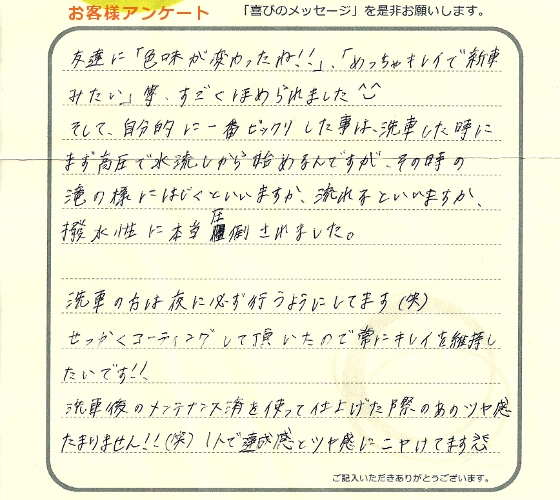 お客様アンケート 「喜びのメッセージ」を是非お願いします。
友達に「色味が変わったね!!」、「めっちゃキレイで新車
みたい」等、すごくほめられました^^
そして、自分的に一番ビックリした事は、洗車した時に
まず高圧で水流しから始めるんですが、その時の
滝の様にはじくといいますか、流れ落ちるといいますか、
撥水性に本当圧倒されました。
洗車の方は夜に必ず行うようにしてます(笑)
せっかくコーティングして頂いたので常にキレイを維持し
たいです!!
洗車後のメンテナンス済を使って仕上げた際のあのツヤ感
たまりません!!(笑) 1人で達成感とツヤ感にニヤけてます
ご記入いただきありがとうございます。